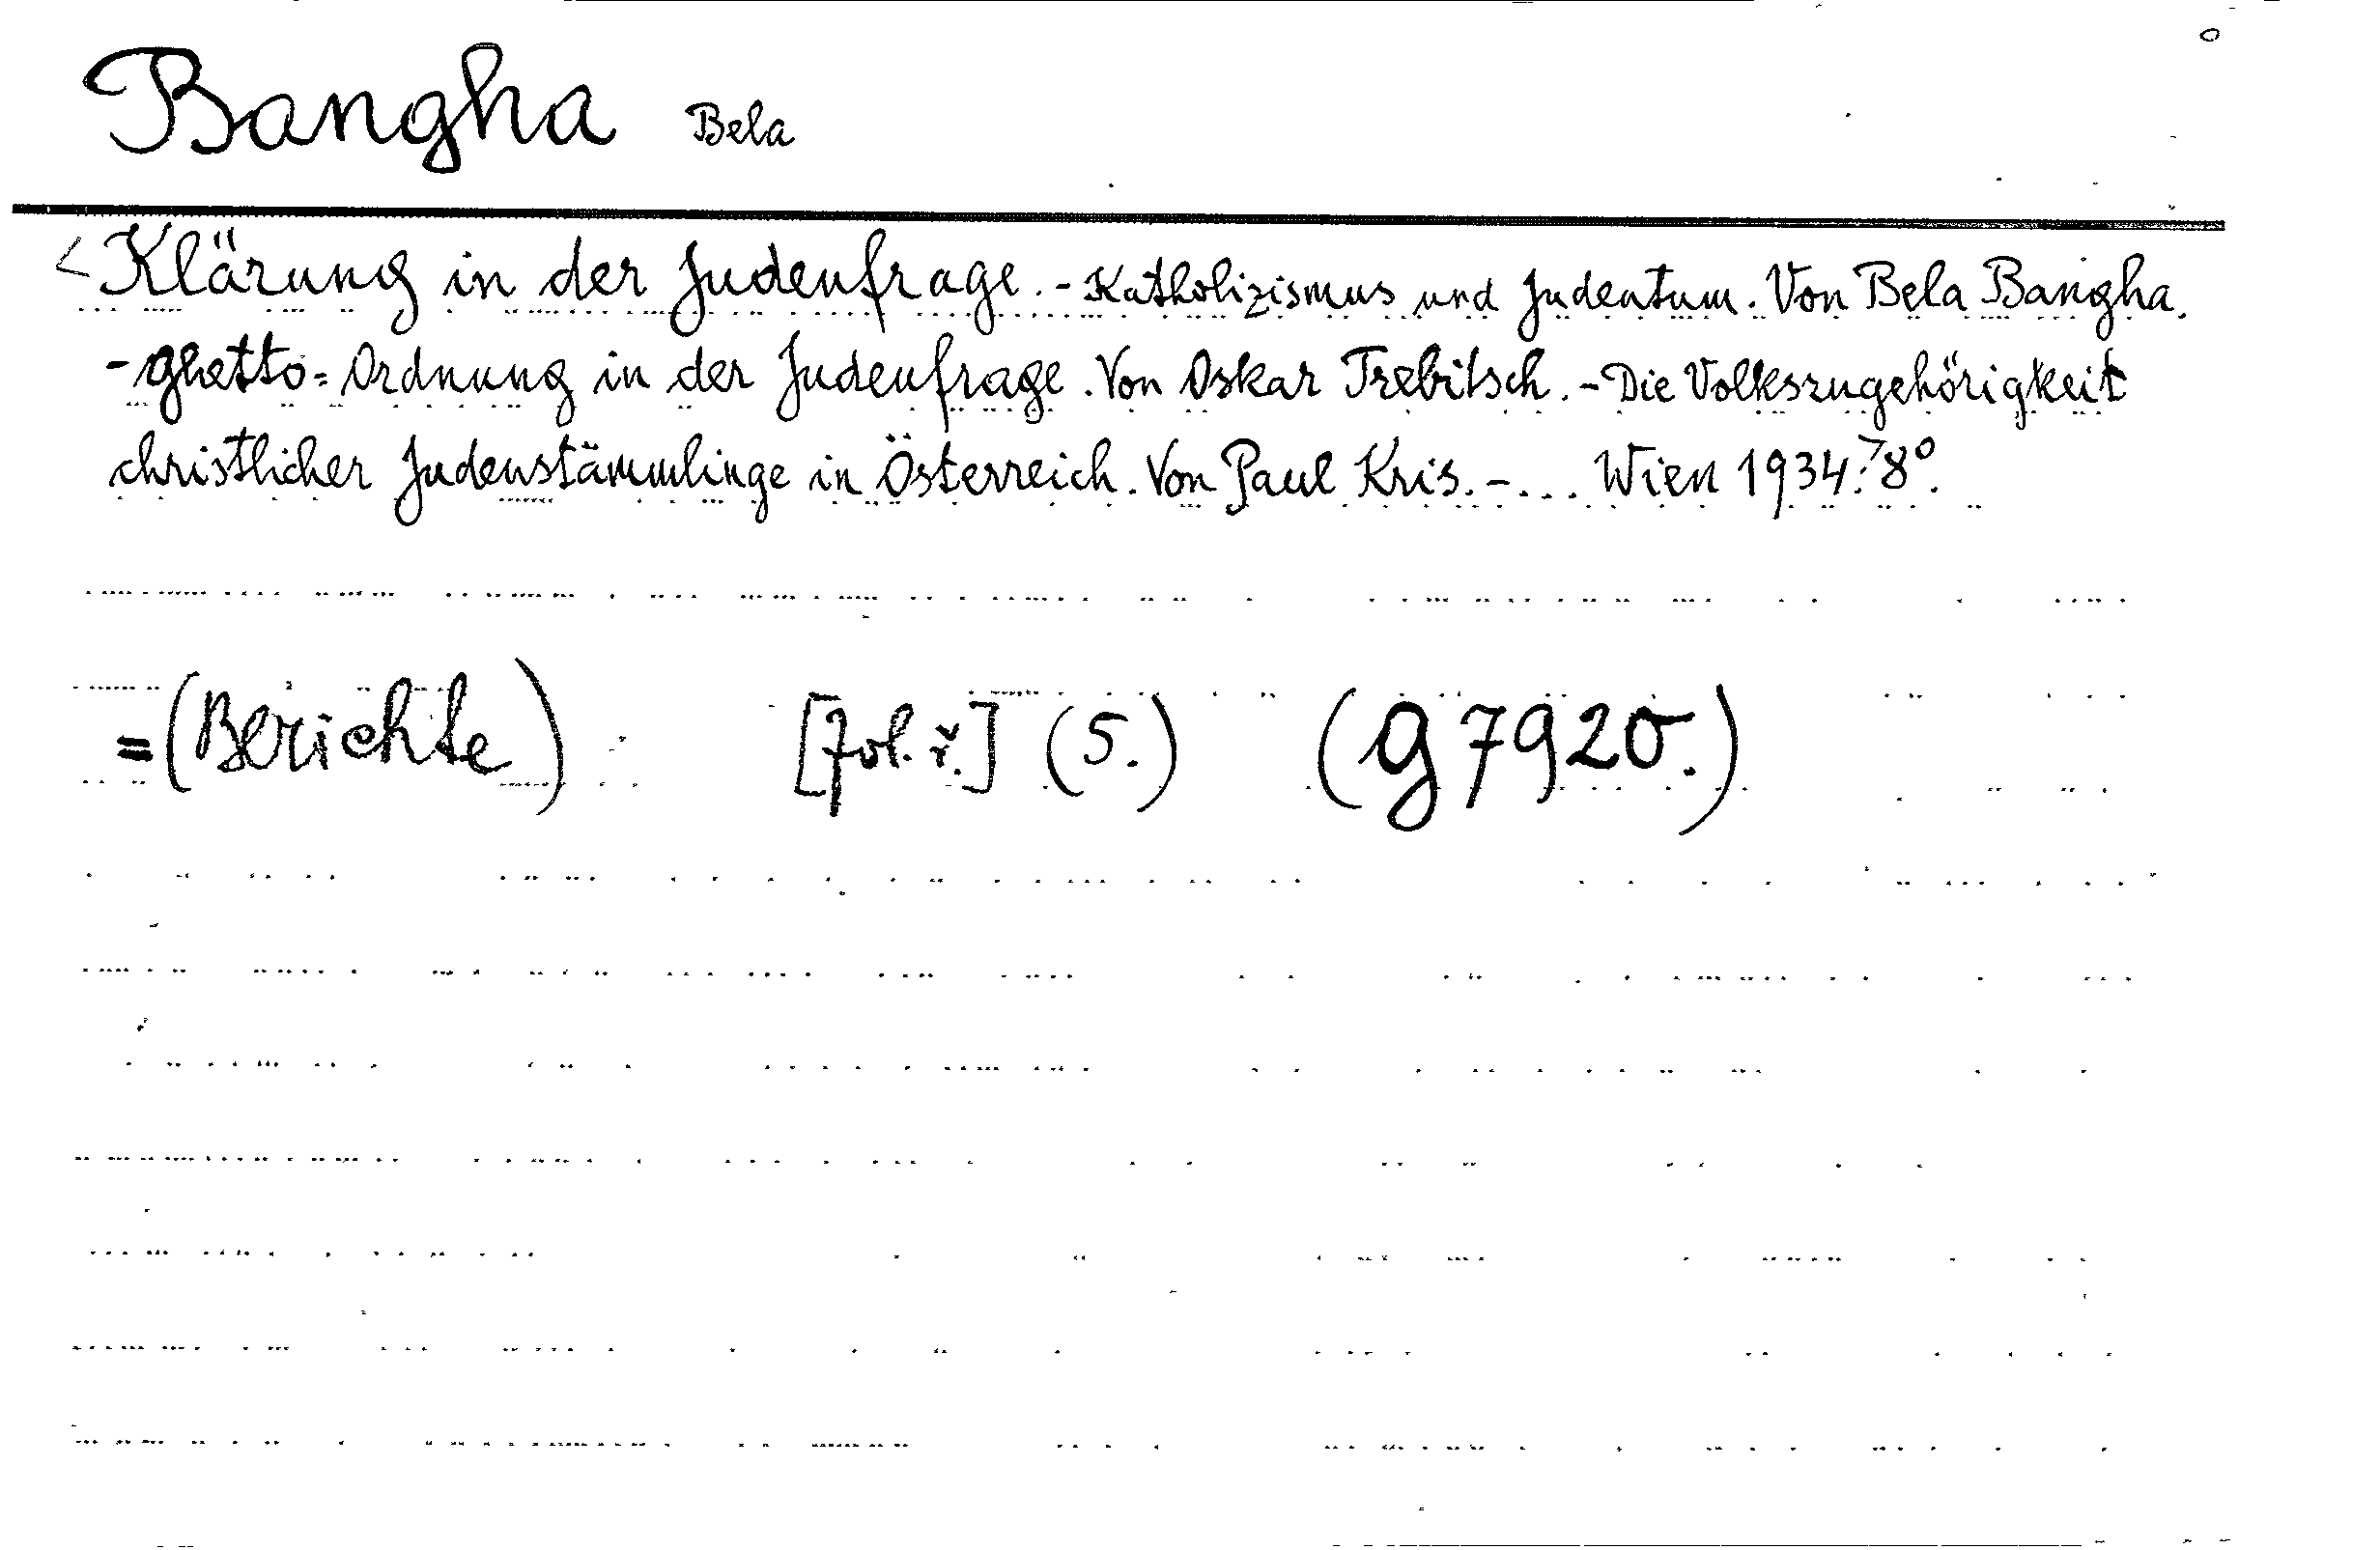 Bangha Bela
<Klärung in der Judenfrage. - Katholizismus und Judentum. Von Bela Bangha.
- Ghetto=Ordnung in der Judenfrage. Von Oskar Trebitsch. - Die Volkszugehörigkeit
christlicher Judenstämmlinge in Österreich. Von Paul Kris. - ... Wien 1934.> 8°.
=(Berichte) [fol. ř.] (5.) (g 7920.)